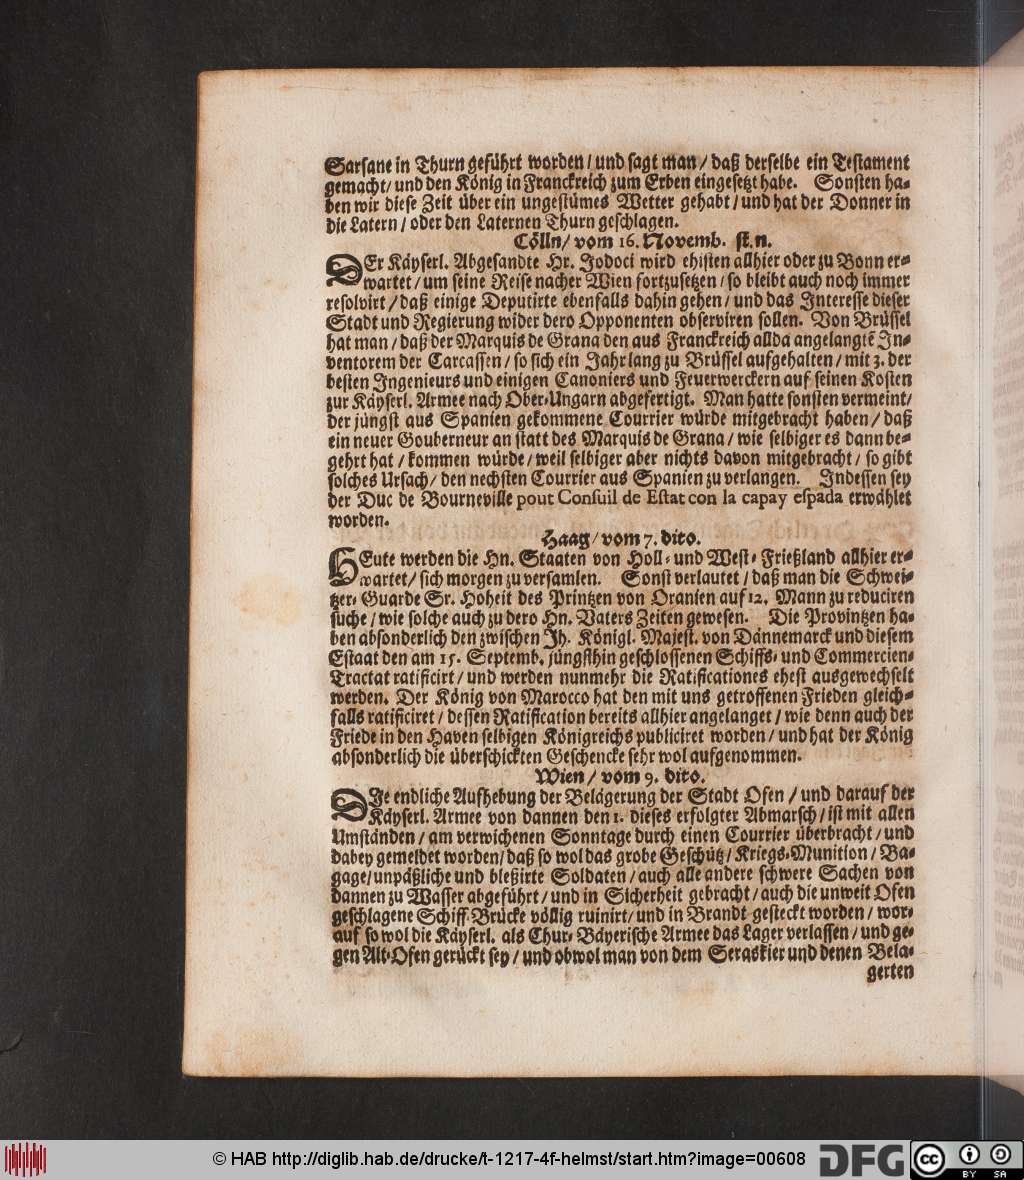 Sarsane in Thurn geführt worden / und sagt man / daß derselbe ein Testament
gemacht / und den König in Franckreich zum Erben eingesetzt habe. Sonsten ha-
ben wir diese Zeit über ein ungestümes Wetter gehabt / und hat der Donner in
die Latern / oder den Laternen Thurn geschlagen.
Cölln / vom 16. Novemb. st. n.
DEr Käyserl. Abgesandte Hr. Jodoci wird ehisten allhier oder zu Bonn er-
wartet / um seine Reise nacher Wien fortzusetzen / so bleibt auch noch immer
resolvirt / daß einige Deputirte ebenfalls dahin gehen / und das Interesse dieser
Stadt und Regierung wider dero Opponenten observiren sollen. Von Brüssel
hat man / daß der Marquis de Grana den aus Franckreich allda angelangtē In-
ventorem der Carcassen / so sich ein Jahr lang zu Brüssel aufgehalten / mit 3. der
besten Ingenieurs und einigen Canoniers und Feuerwerckern auf seinen Kosten
zur Käyserl. Armee nach Ober-Ungarn abgefertigt. Man hatte sonsten vermeint /
der jüngst aus Spanien gekommene Courrier würde mitgebracht haben / daß
ein neuer Gouberneur an statt des Marquis de Grana / wie selbiger es dann be-
gehrt hat / kommen würde / weil selbiger aber nichts davon mitgebracht / so gibt
solches Ursach / den nechsten Courrier aus Spanien zu verlangen. Indessen sey
der Duc de Bourneville pout Consuil de Estat con la capay espada erwählet
worden.
Haag / vom 7. dito.
HEute werden die Hn. Staaten von Holl- und West-Frießland allhier er-
wartet / sich morgen zu versamlen. Sonst verlautet / daß man die Schwei-
tzer-Guarde Sr. Hoheit des Printzen von Oranien auf 12. Mann zu reduciren
suche / wie solche auch zu dero Hn. Vaters Zeiten gewesen. Die Provintzen ha-
ben absonderlich den zwischen Jh. Königl. Majest. von Dännemarck und diesem
Estaat den am 15. Septemb. jüngsthin geschlossenen Schiffs- und Commercien-
Tractat ratificirt / und werden nunmehr die Ratificationes ehest ausgewechselt
werden. Der König von Marocco hat den mit uns getroffenen Frieden gleich-
falls ratificiret / dessen Ratification bereits allhier angelanget / wie denn auch der
Friede in den Haven selbigen Königreichs publiciret worden / und hat der König
absonderlich die überschickten Geschencke sehr wol aufgenommen.
Wien / vom 9. dito.
DIe endliche Aufhebung der Belägerung der Stadt Ofen / und darauf der
Käyserl. Armee von dannen den 1. dieses erfolgter Abmarsch / ist mit allen
Umständen / am verwichenen Sonntage durch einen Courrier überbracht / und
dabey gemeldet worden / daß so wol das grobe Geschütz / Kriegs-Munition / Ba-
gage / unpäßliche und bleßirte Soldaten / auch alle andere schwere Sachen von
dannen zu Wasser abgeführt / und in Sicherheit gebracht / auch die unweit Ofen
geschlagene Schiff-Brücke völlig ruinirt / und in Brandt gesteckt worden / wor-
auf so wol die Käyserl. als Chur-Bäyerische Armee das Lager verlassen / und ge-
gen Alt-Ofen gerückt sey / und obwol man von dem Seraskier und denen Bela-
gerten
© HAB http://diglib.hab.de/drucke/t-1217-4f-helmst/start.htm?image=00608 DFG cc BY SA